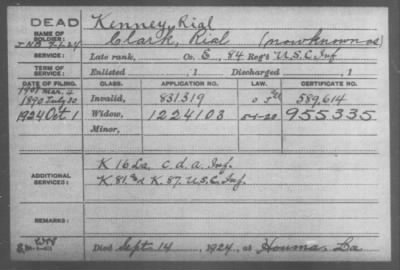 DEAD Kenney, Rial
NAME OF SOLDIER: Clark, Rial (now known as)
Late rank, Co. E, 84 Reg't U.S.C. Inf
TERM OF SERVICE: Enlisted , 1 Discharged , 1
DATE OF FILING. CLASS. APPLICATION NO. LAW. CERTIFICATE NO.
1890 July 30 Invalid, 831319 589,614
1924 Oct 1 Widow, 1224103 955335
Minor,
ADDITIONAL SERVICES: K 16 La. C.d.A. Inf.
K. 81. & K. 87. U.S.C. Inf.
REMARKS:
Died Sept. 14, 1924, at Houma, La